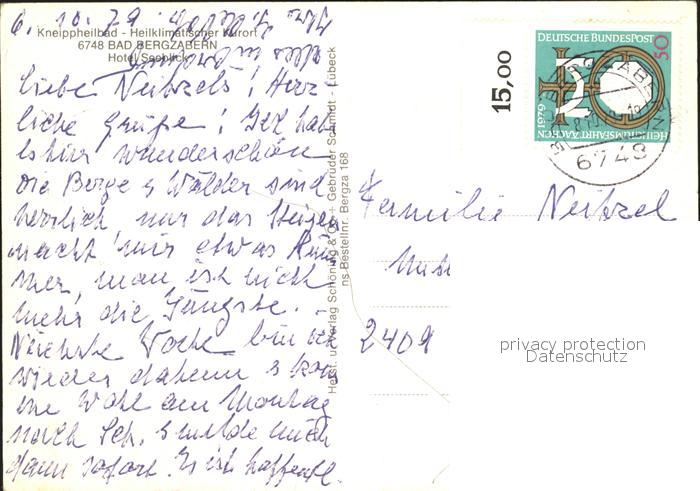 6. 10. 79
Kneippheilbad - Heilklimatischer Kurort
6748 BAD BERGZABERN
Hotel Seeblick
liebe Neitzels! Herz-
liche Grüße! Ich hab
es hier wunderschön
Die Berge & Wälder sind
herrlich, nur das Steigen
macht mir etwas Küm
mer, man ist nicht
mehr die Jüngste. –
Nächste Woche bin ich
wieder daheim & kom
me wohl am Montag
nach Sch. & melde mich
dann sofort. Es ist hoffentl.
Herst. u. Verlag Schöning & Co + Gebrüder Schmidt · Lübeck
ns-Bestellnr. Bergza 168
15,00
DEUTSCHE BUNDESPOST
50
1979
HEILIGTUMSFAHRT AACHEN
6748
Familie
2409
privacy protection
Datenschutz